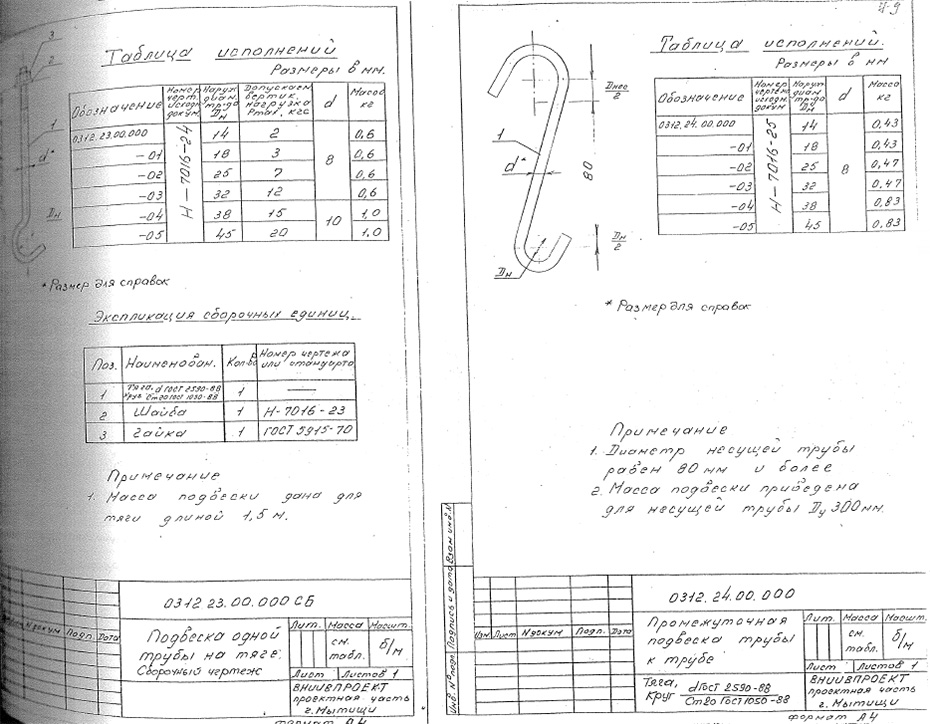 3
2
1
d*
Dн
Таблица исполнений
Размеры в мм.
Обозначение | Номер черт. исходн. докум. | Наруж. диам. тр-да Dн | Допускаем. вертик. нагрузка Pmax, кгс | d | Масса кг
0312.23.00.000 | Н-7016-24 | 14 | 2 | 8 | 0,6
-01 | 18 | 3 | 0,6
-02 | 25 | 7 | 0,6
-03 | 32 | 12 | 0,6
-04 | 38 | 15 | 10 | 1,0
-05 | 45 | 20 | 1,0
* Размер для справок
Экспликация сборочных единиц.
Поз. | Наименован. | Кол-во | Номер чертежа или стандарта
1 | Тяга. d ГОСТ 2590-88 Круг Ст20 ГОСТ 1050-88 | 1 | —
2 | Шайба | 1 | Н-7016-23
3 | Гайка | 1 | ГОСТ 5915-70
Примечание
1. Масса подвески дана для
тяги длиной 1,5 м.
0312.23.00.000 СБ
Подвеска одной
трубы на тяге.
Сборочный чертеж
Лит. | Масса | Масшт.
см. табл. | б/м
Лист | Листов 1
Лист | № докум | Подп. | Дата
ВНИИВПРОЕКТ
проектная часть
г. Мытищи
Формат А4
Dнес
2
1
d*
80
Dн
2
1
Dн
Таблица исполнений.
Размеры в мм
Обозначение | Номер чертеж. исходн. докум. | Наруж. диам. тр-да Dн | d | Масса кг
0312.24.00.000 | Н-7016-25 | 14 | 8 | 0,43
-01 | 18 | 0,43
-02 | 25 | 0,47
-03 | 32 | 0,47
-04 | 38 | 0,83
-05 | 45 | 0,83
* Размер для справок
Примечание
1. Диаметр несущей трубы
равен 80 мм и более
2. Масса подвески приведена
для несущей трубы Dу 300 мм.
Инв. № подл | Подпись и дата | Взам инв. №
0312.24.00.000
Изм | Лист | № докум | Подп. | Дата
Промежуточная
подвеска трубы
к трубе
Лит. | Масса | Масшт.
см. табл. | б/м
Лист | Листов 1
Тяга,
Круг d ГОСТ 2590-88
Ст20 ГОСТ 1050-88
ВНИИВПРОЕКТ
проектная часть
г. Мытищи
формат А4